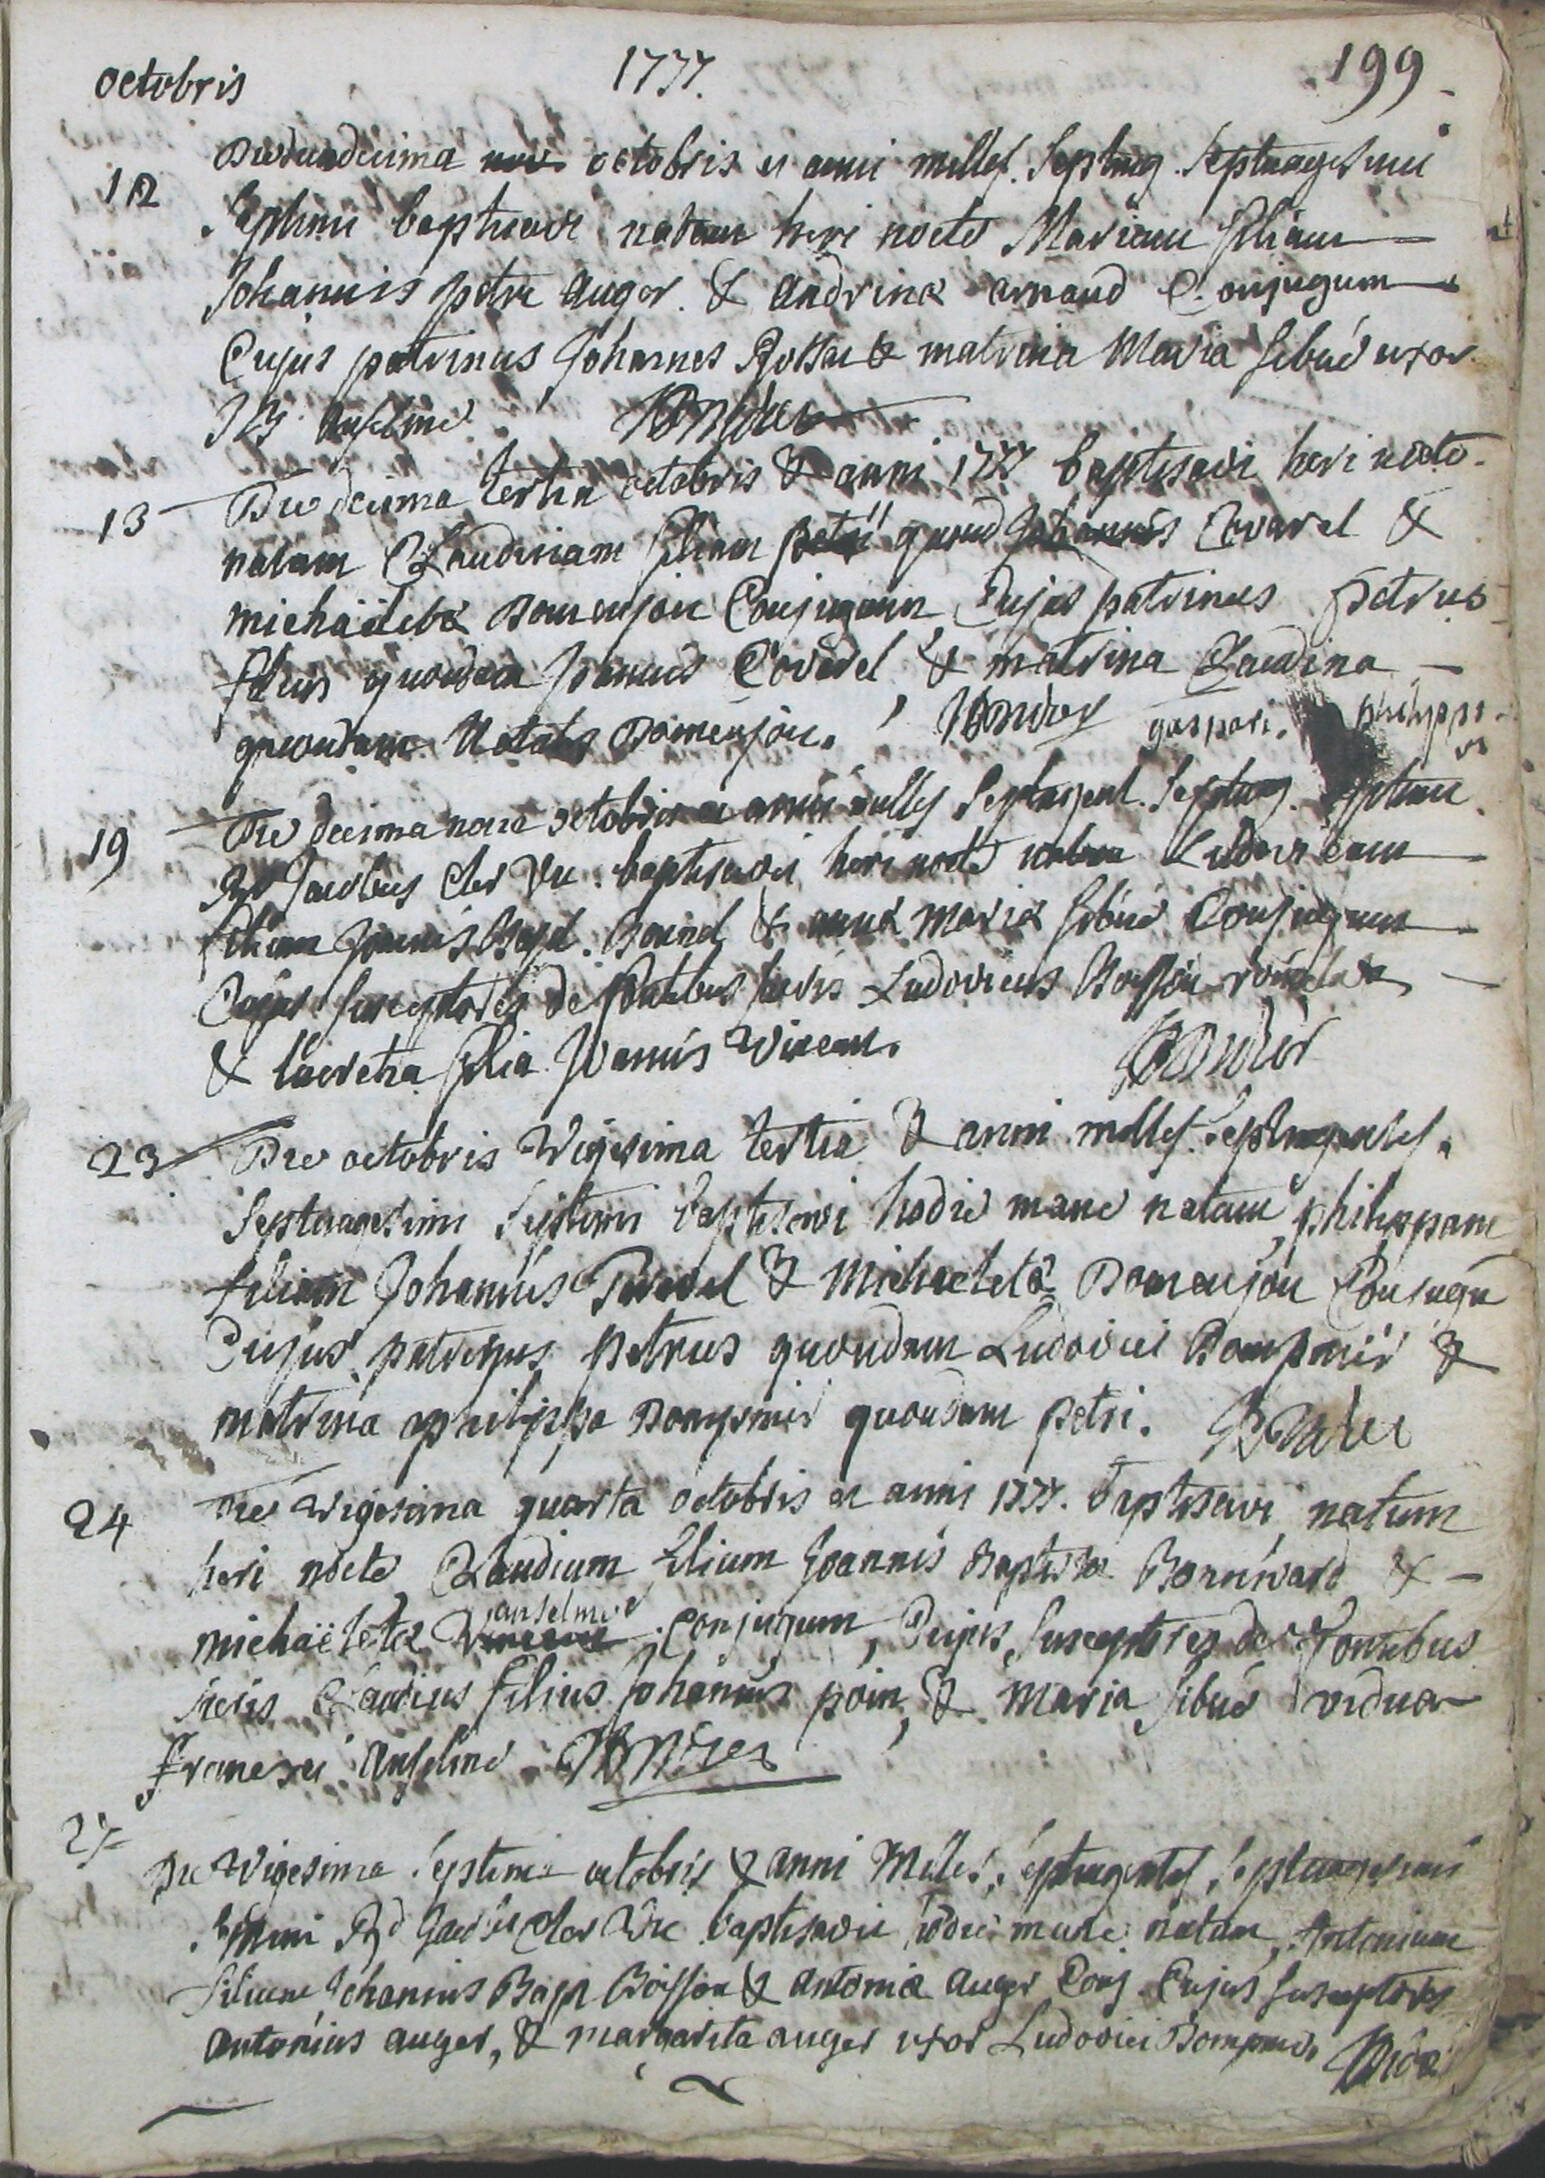 octobris 1777. 199
12 Die duodecima octobris et anni milles. Septing. Septuagesimi
Septimi baptisavi natam heri nocte Mariam filiam
Johannis petri Auger & Andrinæ arnaud Conjugum
Cujus patrinus Johannes & matrina Maria sibué uxor
JB anselme
13 Die decima tertia octobris & anni 1777 baptisavi heri nocte
natam Claudinam filiam petri quond Johannis Covarel &
michaëletæ Domenjou Conjugum Cujus patrinus Petrus
filius quondam Joannis Covarel & matrina Claudina
quondam Natalis Domenjou. gaspari. philippi
19 Die decima nona octobris et anni milles Septingent. Septuag. Septimi
Rd Jacobus Cler Vic. baptisavi heri nocte natam Ludovicam
filiam Joannis Bapt. & annæ Mariæ sibué Conjugum
Cujus susceptores de fontibus sacris Ludovicus
& lucretia filia Joannis Vincent.
23 Die octobris Vigesima tertia & anni milles. Septingentes.
Septuagesimi Septimi baptisavi hodie mane natam, philippam
filiam Johannis & Michaeletæ Domenjou Conjugu
Cujus patrinus petrus quondam Ludovici Dompnier &
matrina philippa Dompnier quondam petri.
24 Die vigesima quarta octobris et anni 1777. baptisavi natum
heri nocte Claudium filium Joannis Baptistæ &
anselme
michaëletæ Conjugum, Cujus susceptores de fontibus
sacris Claudius filius Johannis poin, & Maria sibué vidua
francisci anselme
27 Die Vigesima septima octobris & anni Milles. septingentes, septuagesimi
septimi Rd Cler Vic baptisavi hodie mane natam, Antoniam
filiam Johannis Bapt Boisson & antoniæ auger Conj. Cujus susceptores
antonius auger, & margarita auger uxor Ludovici Dompnier.